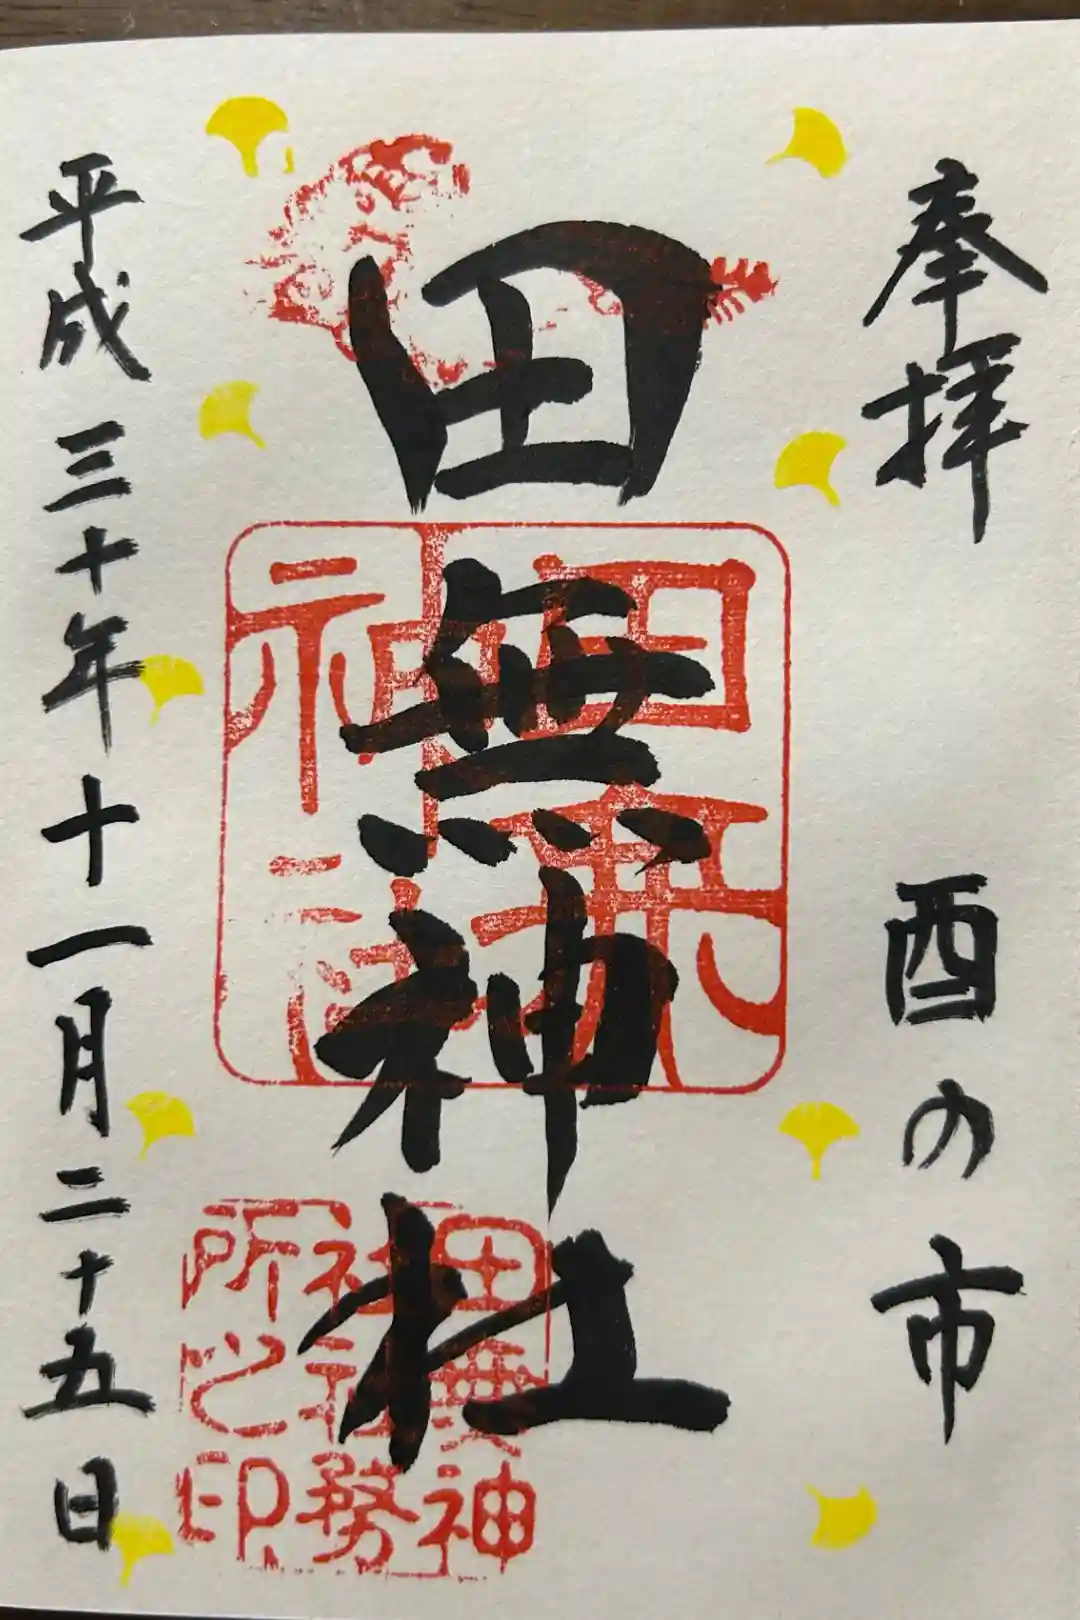 奉拝 酉の市
田無神社
田無神社
田無神社社務所之印
平成三十年十一月二十五日